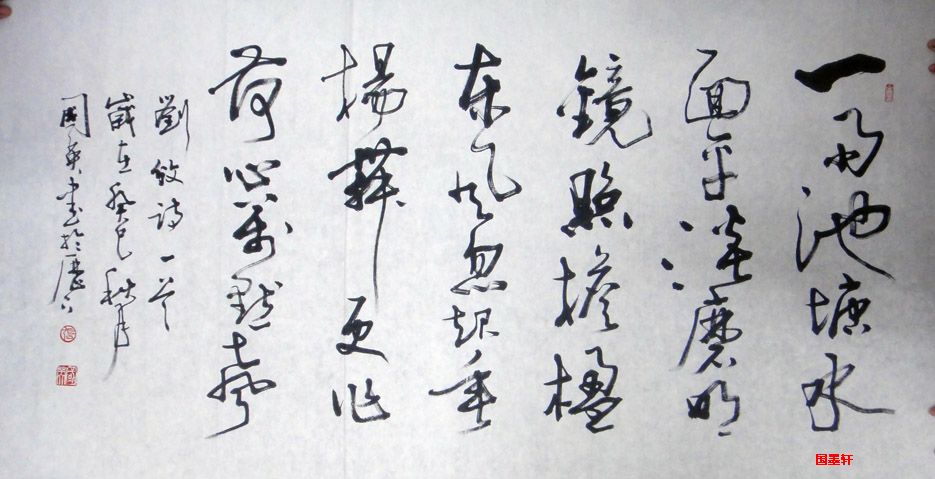 一雨池塘水
面平淡磨明
鏡照檐楹
東风忽起垂
楊舞更作
荷心萬點聲
劉攽詩一首
歲在癸巳秋月
國英書於歷下
国墨轩